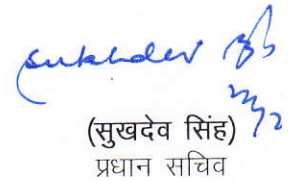 Sukhdev
(सुखदेव सिंह)
प्रधान सचिव